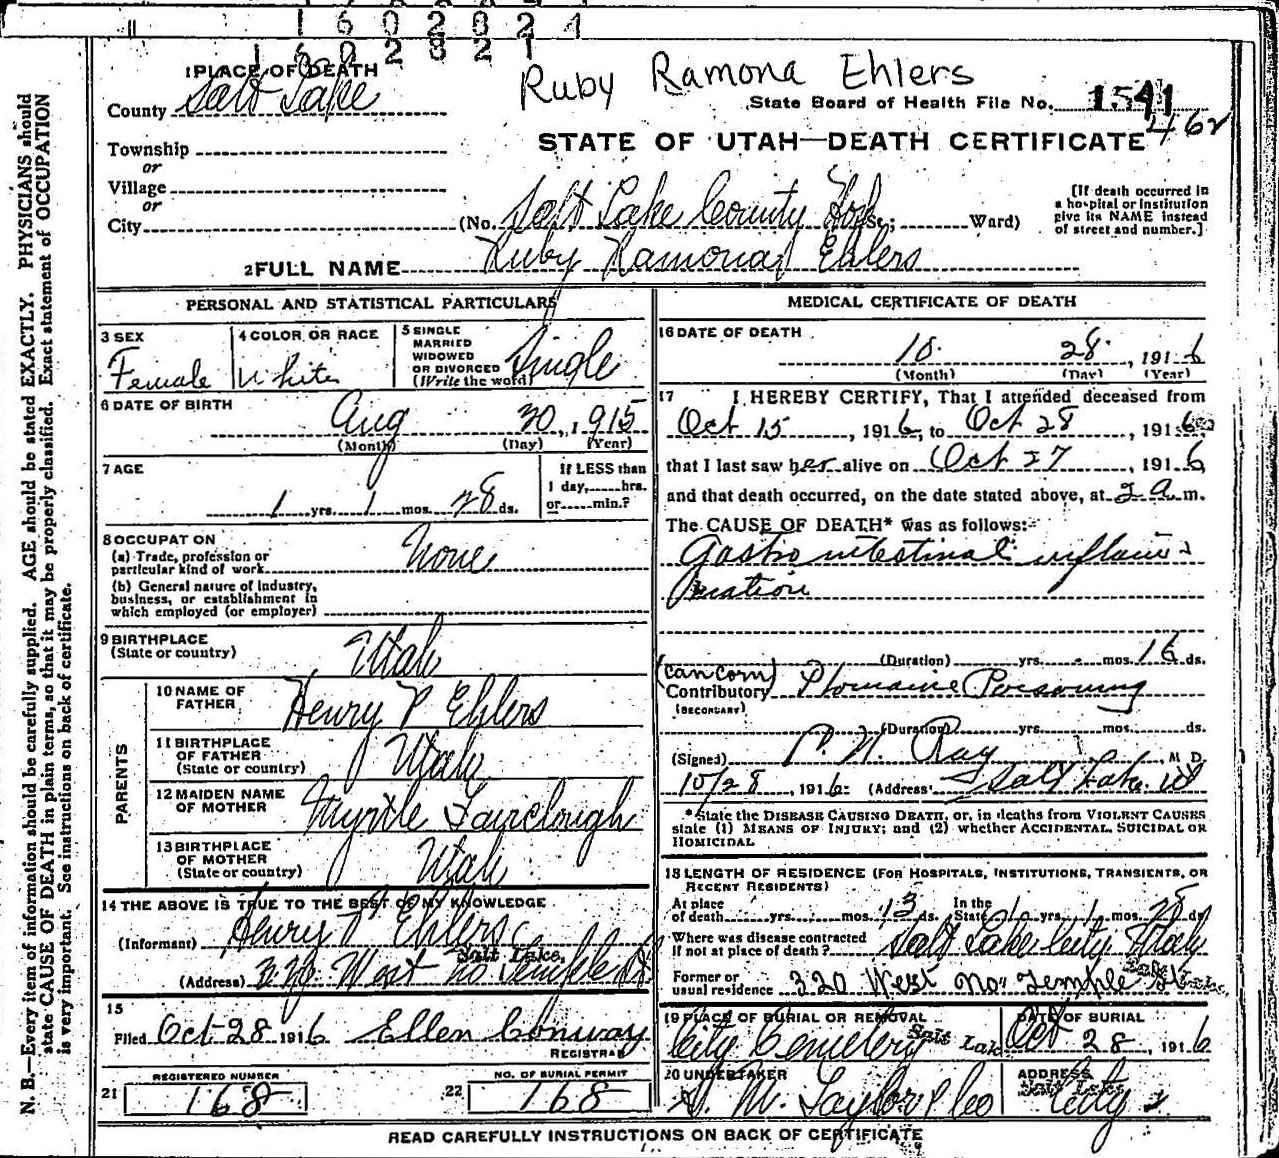 11 1602821
1602821
1 PLACE OF DEATH
Ruby Ramona Ehlers
County Salt Lake
State Board of Health File No. 1541
462
Township
or
STATE OF UTAH—DEATH CERTIFICATE
Village
or
City (No. Salt Lake County Hosp St.; Ward)
[If death occurred in
a hospital or institution
give its NAME instead
of street and number.]
2 FULL NAME Ruby Ramona Ehlers
PERSONAL AND STATISTICAL PARTICULARS
3 SEX
Female
4 COLOR OR RACE
White
5 SINGLE
MARRIED
WIDOWED
OR DIVORCED
(Write the word)
Single
6 DATE OF BIRTH
Aug 30, 1915
(Month) (Day) (Year)
7 AGE
1 yrs. 1 mos. 28 ds.
If LESS than
1 day, hrs.
or min.?
8 OCCUPATON
(a) Trade, profession or
particular kind of work None
(b) General nature of industry,
business, or establishment in
which employed (or employer)
9 BIRTHPLACE
(State or country) Utah
PARENTS
10 NAME OF
FATHER Henry P Ehlers
11 BIRTHPLACE
OF FATHER
(State or country) Utah
12 MAIDEN NAME
OF MOTHER Myrtle Fairclough
13 BIRTHPLACE
OF MOTHER
(State or country) Utah
14 THE ABOVE IS TRUE TO THE BEST OF MY KNOWLEDGE
(Informant) Henry P Ehlers
Salt Lake,
(Address) 320 West No Temple St
15
Filed Oct 28 1916 Ellen Conway
REGISTRAR
21 REGISTERED NUMBER
168
22 NO. OF BURIAL PERMIT
168
MEDICAL CERTIFICATE OF DEATH
16 DATE OF DEATH
10 28, 1916
(Month) (Day) (Year)
17 I HEREBY CERTIFY, That I attended deceased from
Oct 15, 1916, to Oct 28, 1916
that I last saw her alive on Oct 27, 1916
and that death occurred, on the date stated above, at 2 a m.
The CAUSE OF DEATH* was as follows:
Gastro intestinal inflam-
mation
(Duration) yrs. - mos. 16 ds.
(can corn)
Contributory Ptomaine Poisoning
(SECONDARY)
(Duration) yrs. mos. ds.
(Signed) P. N. Ray, M D.
10/28, 1916 (Address) Salt Lake. Ut
*State the DISEASE CAUSING DEATH, or, in deaths from VIOLENT CAUSES
state (1) MEANS OF INJURY; and (2) whether ACCIDENTAL, SUICIDAL OR
HOMICIDAL
18 LENGTH OF RESIDENCE (FOR HOSPITALS, INSTITUTIONS, TRANSIENTS, OR
RECENT RESIDENTS)
At place
of death yrs. mos. 13 ds.
In the
State 1 yrs. 1 mos. 28 ds
Where was disease contracted
if not at place of death? Salt Lake City Utah
Former or
usual residence 320 West No. Temple St. Salt Lake,
19 PLACE OF BURIAL OR REMOVAL
City Cemetery Salt Lake
DATE OF BURIAL
Oct 28, 1916
20 UNDERTAKER
S. M. Taylor & Co
ADDRESS
Salt Lake
City
READ CAREFULLY INSTRUCTIONS ON BACK OF CERTIFICATE
N. B.—Every item of information should be carefully supplied. AGE should be stated EXACTLY. PHYSICIANS should
state CAUSE OF DEATH in plain terms, so that it may be properly classified. Exact statement of OCCUPATION
is very important. See instructions on back of certificate.